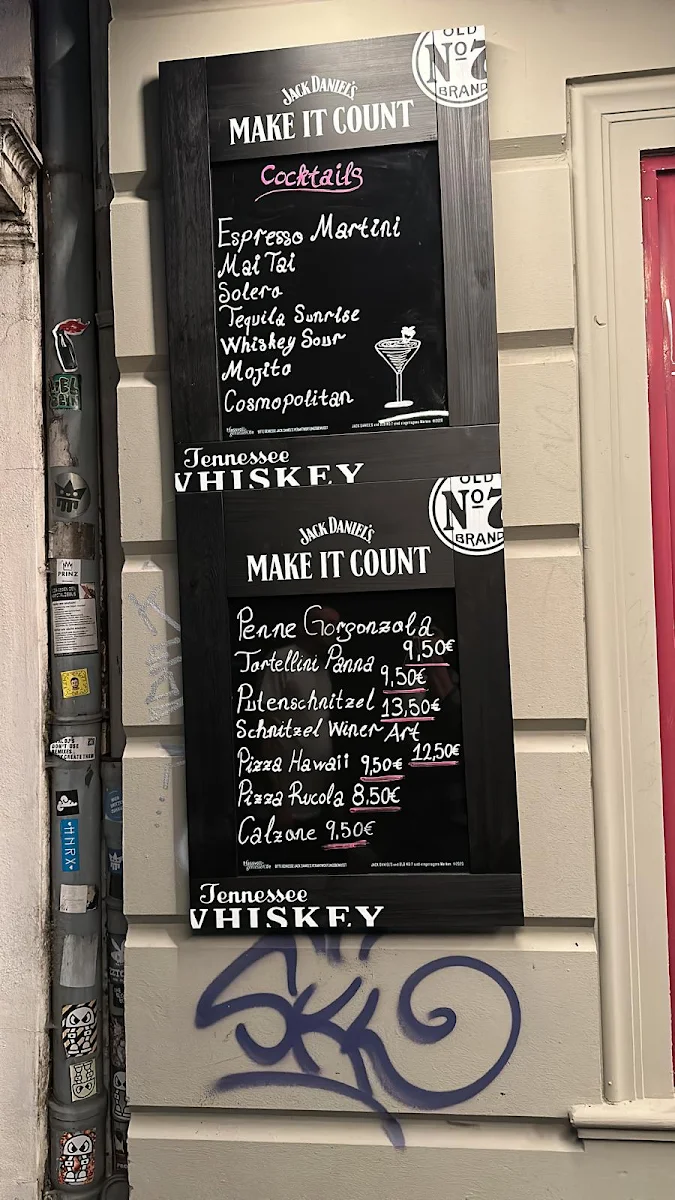 OLD
No 7
BRAND
JACK DANIEL'S
MAKE IT COUNT
Cocktails
Espresso Martini
Mai Tai
Solero
Tequila Sunrise
Whiskey Sour
Mojito
Cosmopolitan
Tennessee
WHISKEY
OLD
No 7
BRAND
JACK DANIEL'S
MAKE IT COUNT
Penne Gorgonzola
9,50€
Tortellini Panna
9,50€
Putenschnitzel 13,50€
Schnitzel Winer Art
12,50€
Pizza Hawaii 9,50€
Pizza Rucola 8,50€
Calzone 9,50€
Tennessee
WHISKEY
PRINZ
HNRX